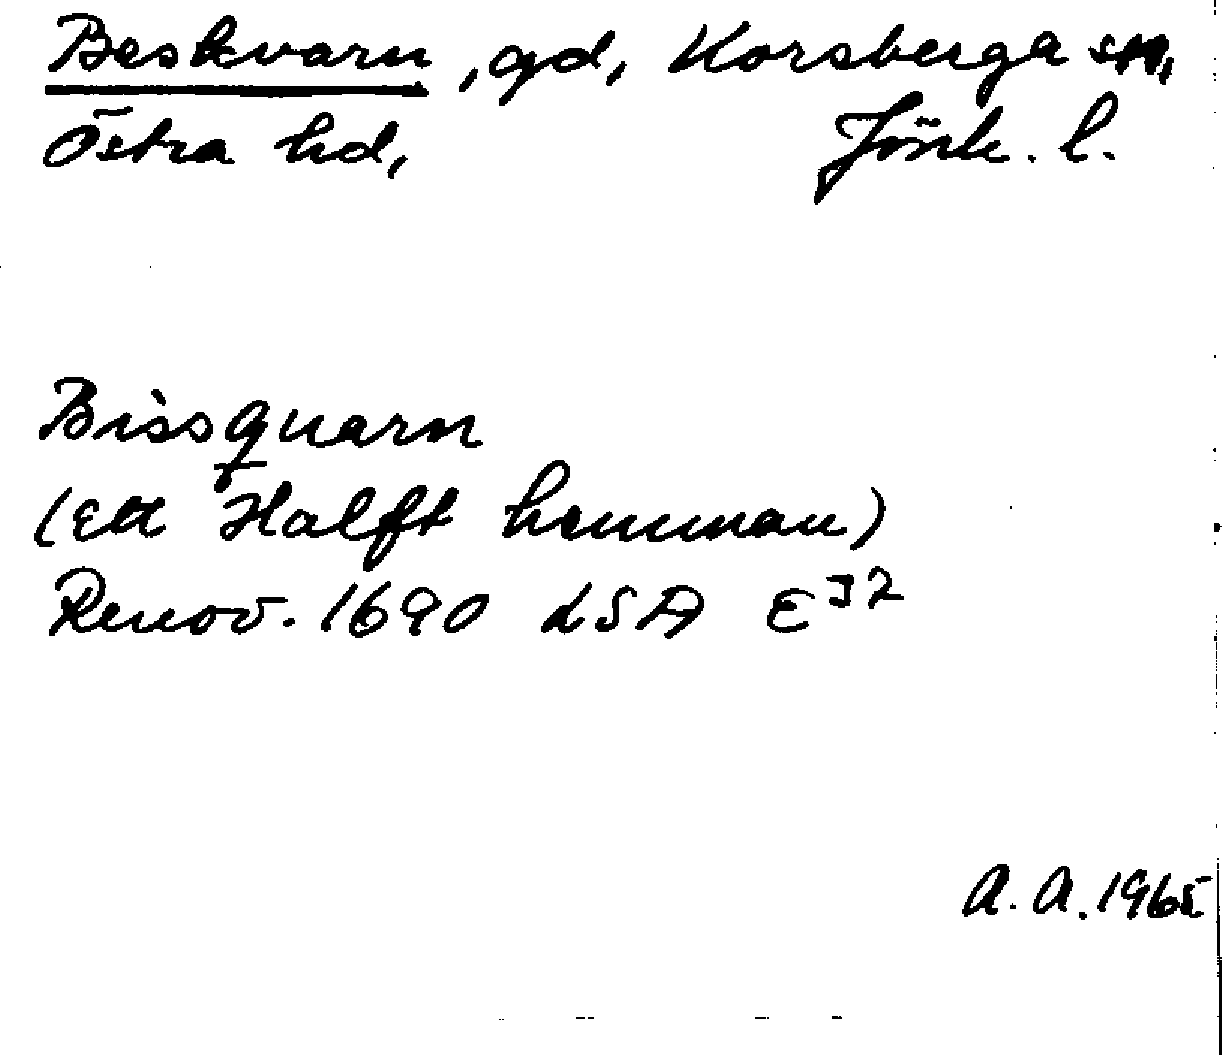 Beskvarn, gd, Korsberga sn,
Östra hd, Jönk. l.
Bissquarn
(ett Halft hemman)
Renov. 1690 LSA E 32
A. A. 1965